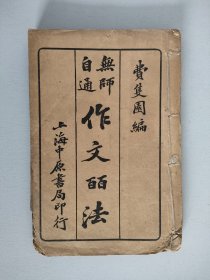 費隻園編
無師自通
作文百法
上海中原書局印行